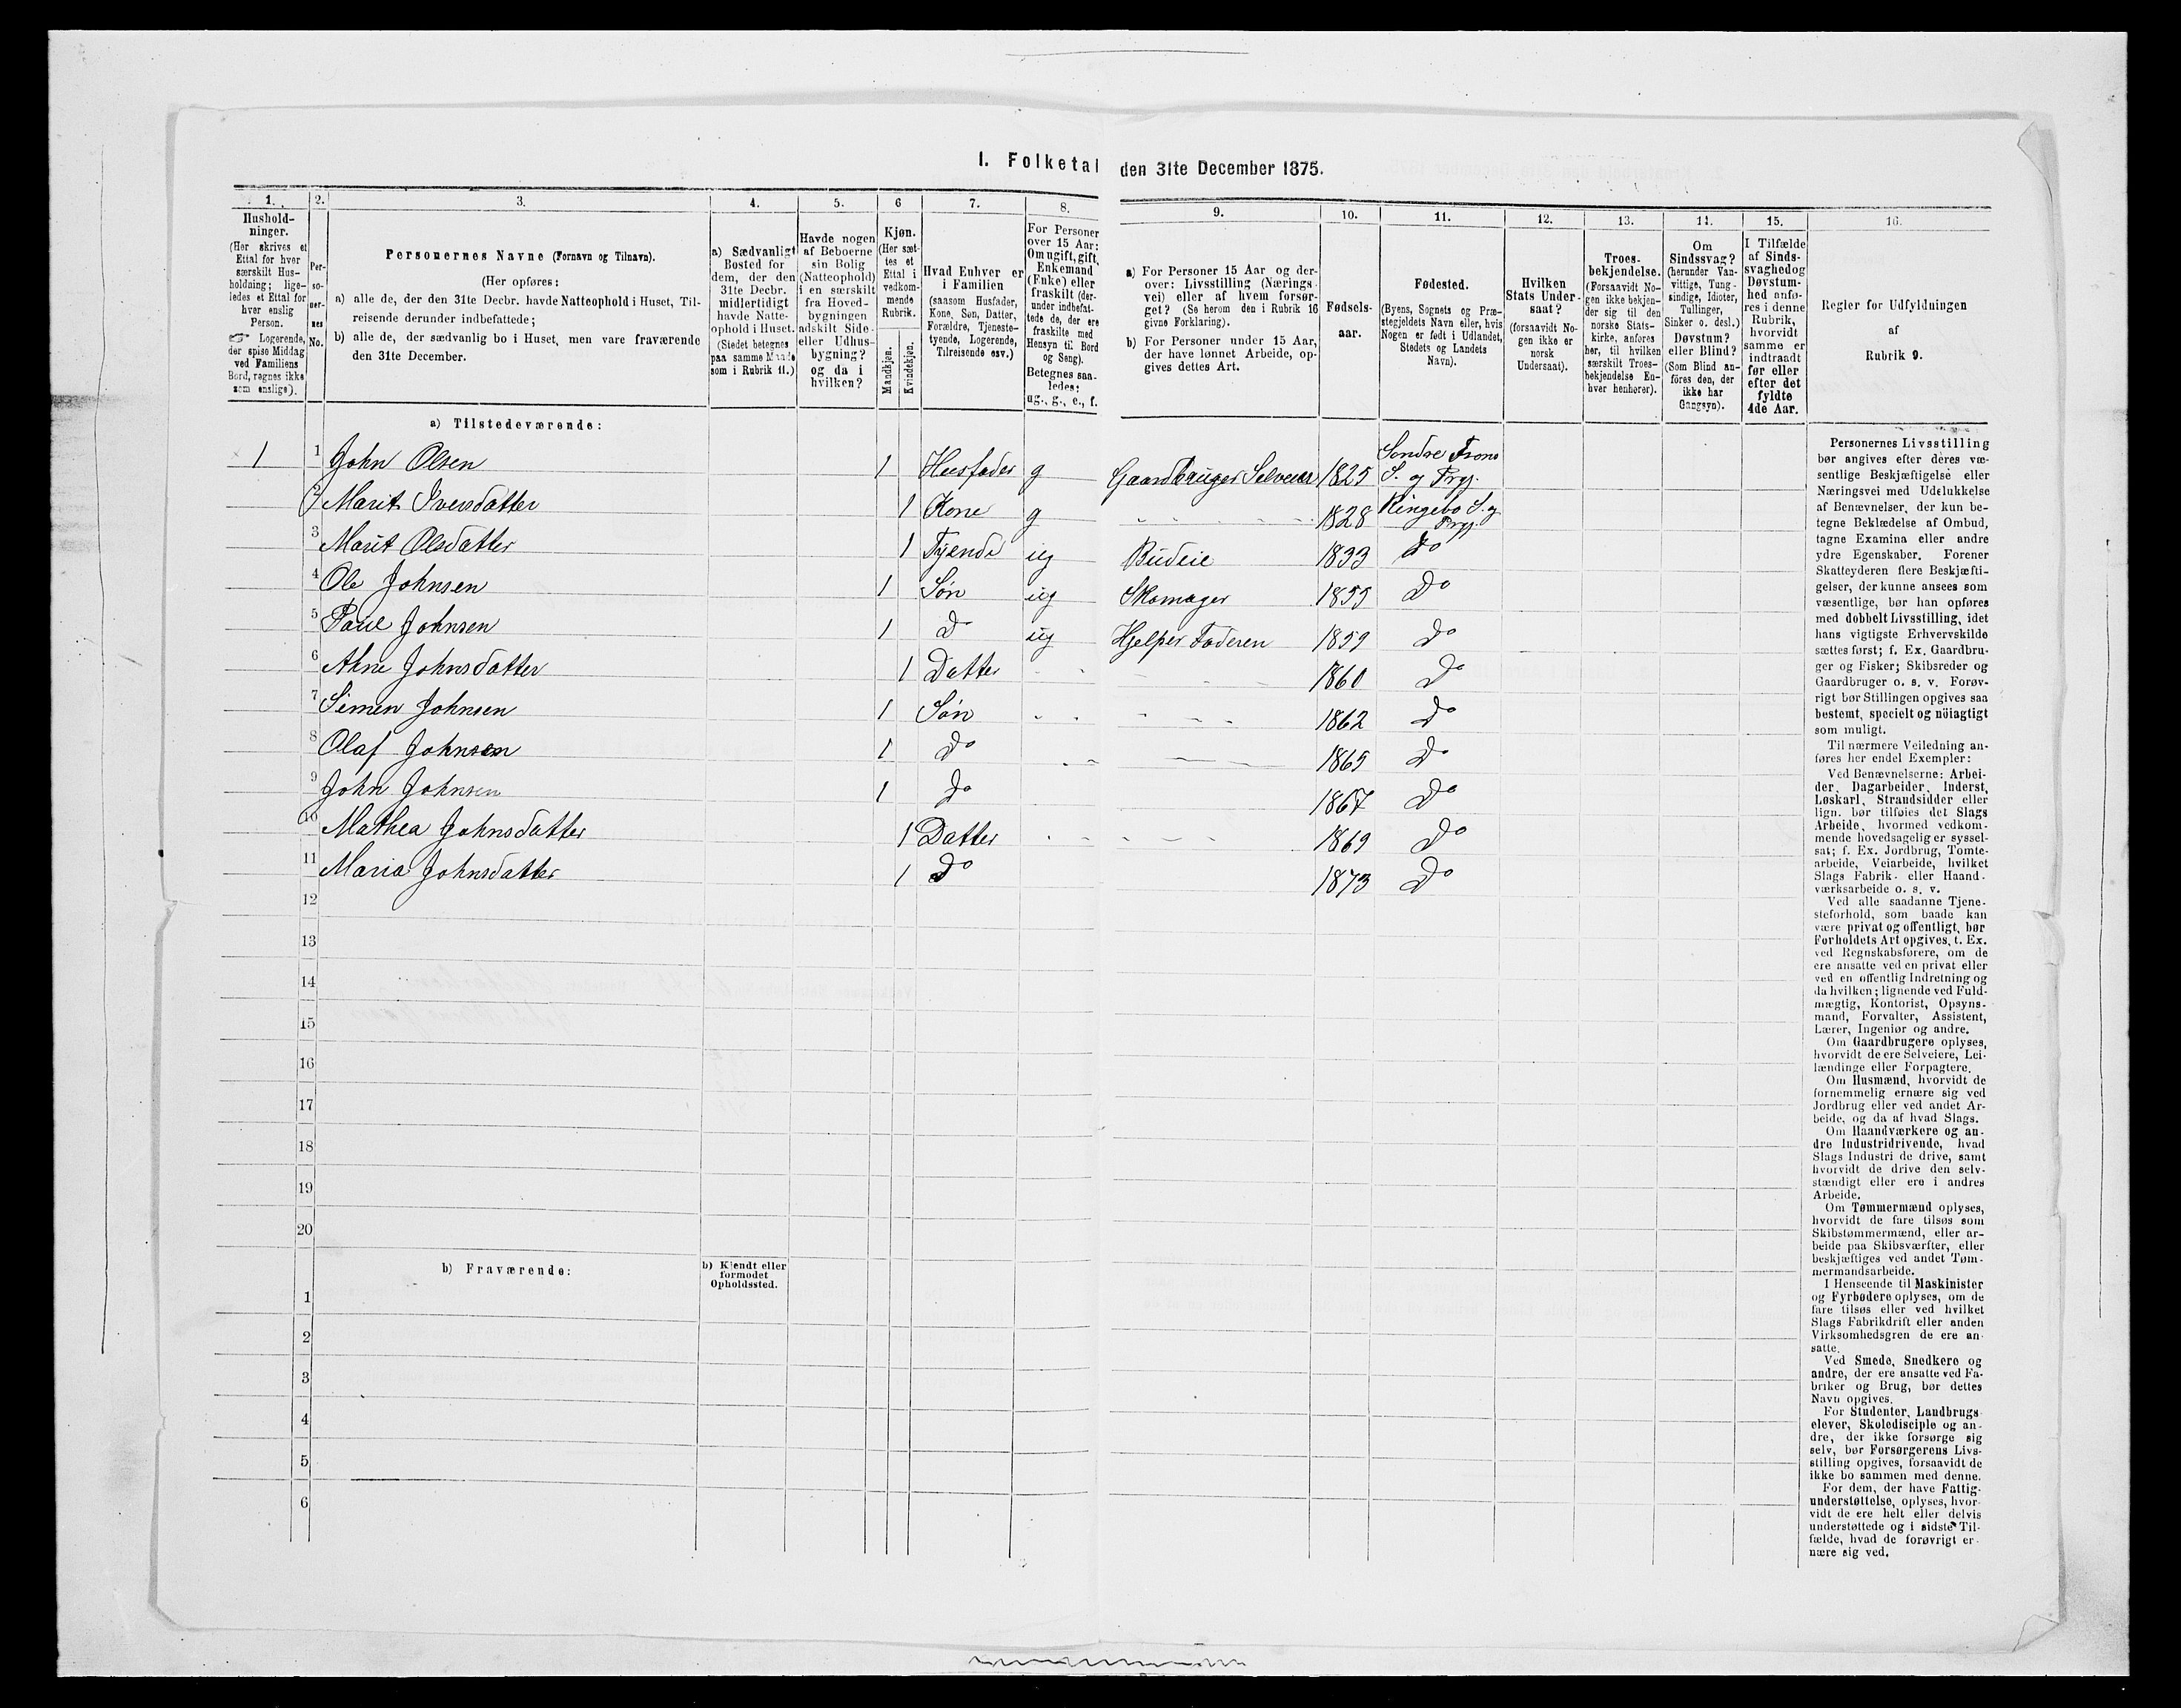 I. Folketal den 31te December 1875.
1. 2. 3. 4. 5. 6 7. 8. 9. 10. 11. 12. 13. 14. 15. 16.
Hushold-
ninger.
(Her skrives et
Ettal for hver
særskilt Hus-
holdning; lige-
ledes et Ettal for
hver enslig
Person.
☞ Logerende,
der spise Middag
ved Familiens
Bord, regnes ikke
som enslige).
Per-
so-
ner-
nes
No.
Personernes Navne (Fornavn og Tilnavn).
(Her opføres:
a) alle de, der den 31te Decbr. havde Natteophold i Huset, Til-
reisende derunder indbefattede;
b) alle de, der sædvanlig bo i Huset, men vare fraværende
den 31te December.
a) Sædvanligt
Bosted for
dem, der den
31te Decbr.
midlertidigt
havde Natte-
ophold i Huset.
(Stedet betegnes
paa samme Maade
som i Rubrik 11.)
Havde nogen
af Beboerne
sin Bolig
(Natteophold)
i en særskilt
fra Hoved-
bygningen
adskilt Side-
eller Udhus-
bygning?
og da i
hvilken?
Kjøn.
(Her sæt-
tes et
Ettal i
vedkom-
mende
Rubrik.
Mandkjøn.
Kvindekjøn.
Hvad Enhver er
i Familien
(saasom Husfader,
Kone, Søn, Datter,
Forældre, Tjeneste-
tyende, Logerende,
Tilreisende osv.)
For Personer
over 15 Aar:
Om ugift, gift,
Enkemand
(Enke) eller
fraskilt (der-
under indbefat-
tede de, der ere
fraskilte med
Hensyn til Bord
og Seng).
Betegnes saa-
ledes:
ug., g., e., f.
a) For Personer 15 Aar og der-
over: Livsstilling (Nærings-
vei) eller af hvem forsør-
get? (Se herom den i Rubrik 16
givne Forklaring).
b) For Personer under 15 Aar,
der have lønnet Arbeide, op-
gives dettes Art.
Fødsels-
aar.
Fødested.
(Byens, Sognets og Præ-
stegjeldets Navn eller, hvis
Nogen er født i Udlandet,
Stedets og Landets
Navn).
Hvilken
Stats Under-
saat?
(forsaavidt No-
gen ikke er
norsk
Undersaat).
Troes-
bekjendelse.
(Forsaavidt No-
gen ikke bekjen-
der sig til den
norske Stats-
kirke, anføres
her, til hvilken
særskilt Troes-
bekjendelse En-
hver henhører).
Om
Sindssvag?
(herunder Van-
vittige, Tung-
sindige, Idioter,
Tullinger,
Sinker o. desl.)
Døvstum?
eller Blind?
(Som Blind an-
føres den, der
ikke har
Gangsyn).
I Tilfælde
af Sinds-
svaghed og
Døvstum-
hed anfø-
res i denne
Rubrik,
hvorvidt
samme er
indtraadt
før eller
efter det
fyldte
4de Aar.
Regler for Udfyldningen
af
Rubrik 9.
a) Tilstedeværende:
1 1 John Olsen 1 Husfader g Gaardbruger Selveier 1825 Sondre Frons S. og Prgj.
2 Marit Iversdatter 1 Kone g 1828 Ringebo S. og Prgj.
3 Marit Olsdatter 1 Tyende ug Budeie 1833 Do
4 Ole Johnsen 1 Søn ug Skomager 1855 Do
5 Paul Johnsen 1 Do ug Hjelper Faderen 1859 Do
6 Ahne Johnsdatter 1 Datter 1860 Do
7 Simen Johnsen 1 Søn 1862 Do
8 Olaf Johnsen 1 Do 1865 Do
9 John Johnsen 1 Do 1867 Do
10 Mathea Johnsdatter 1 Datter 1869 Do
11 Maria Johnsdatter 1 Do 1873 Do
12
13
14
15
16
17
18
19
20
b) Fraværende:
b) Kjendt eller
formodet
Opholdssted.
1
2
3
4
5
6
Personernes Livsstilling
bør angives efter deres væ-
sentlige Beskjæftigelse eller
Næringsvei med Udelukkelse
af Benævnelser, der kun be-
tegne Beklædelse af Ombud,
tagne Examina eller andre
ydre Egenskaber. Forener
Skatteyderen flere Beskjæfti-
gelser, der kunne ansees som
væsentlige, bør han opføres
med dobbelt Livsstilling, idet
hans vigtigste Erhvervskilde
sættes først; f. Ex. Gaardbru-
ger og Fisker; Skibsreder og
Gaardbruger o. s. v. Forøv-
rigt bør Stillingen opgives saa
bestemt, specielt og nöiagtigt
som muligt.
Til nærmere Veiledning an-
føres her endel Exempler:
Ved Benævnelserne: Arbei-
der, Dagarbeider, Inderst,
Løskarl, Strandsidder eller
lign. bør tilføies det Slags
Arbeide, hvormed vedkom-
mende hovedsagelig er syssel-
sat; f. Ex. Jordbrug, Tomte-
arbeide, Veiarbeide, hvilket
Slags Fabrik- eller Haand-
værksarbeide o. s. v.
Ved alle saadanne Tjene-
steforhold, som baade kan
være privat og offentligt, bør
Forholdets Art opgives, t. Ex.
ved Regnskabsførere, om de
ere ansatte ved en privat eller
ved en offentlig Indretning og
da hvilken; lignende ved Fuld-
mægtig, Kontorist, Opsyns-
mand, Forvalter, Assistent,
Lærer, Ingeniør og andre.
Om Gaardbrugere oplyses,
hvorvidt de ere Selveiere, Lei-
lændinge eller Forpagtere.
Om Husmænd, hvorvidt de
fornemmelig ernære sig ved
Jordbrug eller ved andet Ar-
beide, og da af hvad Slags.
Om Haandværkere og an-
dre Industridrivende, hvad
Slags Industri de drive, samt
hvorvidt de drive den selv-
stændigt eller ere i andres
Arbeide.
Om Tømmermænd oplyses,
hvorvidt de fare tilsøs som
Skibstømmermænd, eller ar-
beide paa Skibsværfter, eller
beskjæftiges ved andet Tøm-
mermandsarbeide.
I Henseende til Maskinister
og Fyrbødere oplyses, om de
fare tilsøs eller ved hvilket
Slags Fabrikdrift eller anden
Virksomhedsgren de ere an-
satte.
Ved Smede, Snedkere og
andre, der ere ansatte ved Fa-
briker og Brug, bør dettes
Navn opgives.
For Studenter, Landbrugs-
elever, Skoledisciple og an-
dre, der ikke forsørge sig
selv, bør Forsørgerens Livs-
stilling opgives, forsaavidt de
ikke bo sammen med denne.
For dem, der have Fattig-
understøttelse, oplyses, hvor-
vidt de ere helt eller delvis
understøttede og i sidste Til-
fælde, hvad de forøvrigt er-
nære sig ved.